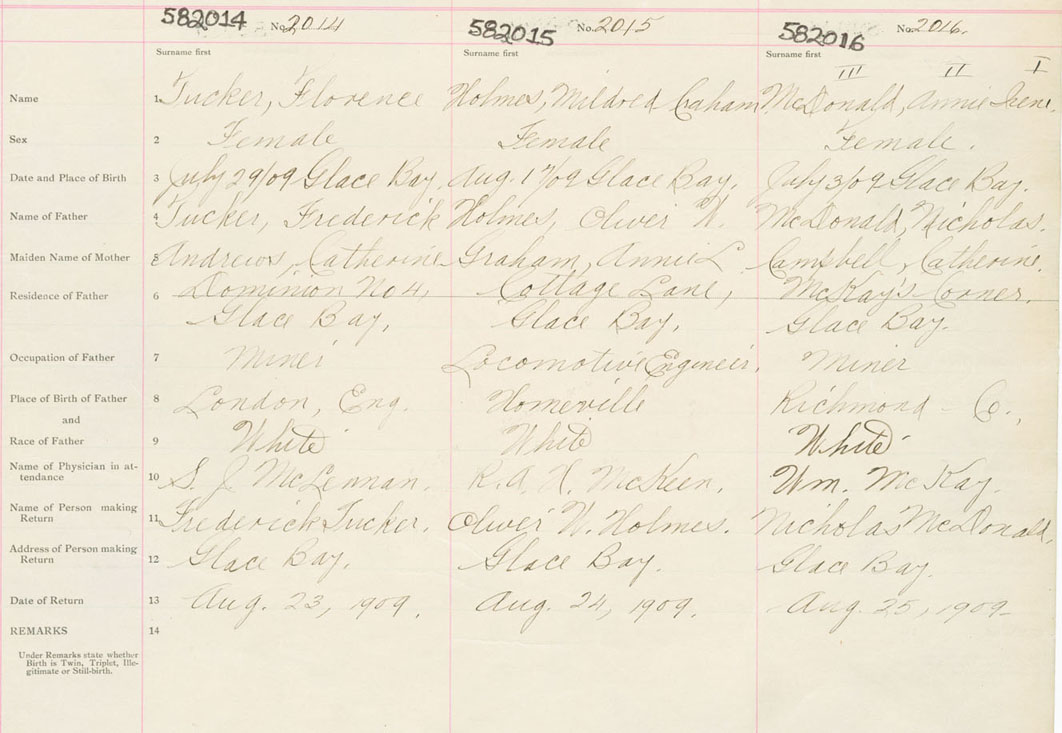 582014 No. 2014 582015 No. 2015 582016 No. 2016.
Surname first Surname first Surname first
III II I
Name 1 Tucker, Florence Holmes, Mildred Caham McDonald, Annie Irene.
Sex 2 Female Female Female.
Date and Place of Birth 3 July 29/09 Glace Bay. Aug. 1/09 Glace Bay. July 3/09 Glace Bay.
Name of Father 4 Tucker, Frederick Holmes, Oliver W. McDonald, Nicholas.
Maiden Name of Mother 5 Andrews, Catherine Graham, Annie L. Campbell, Catherine.
Residence of Father 6 Dominion No 4, Cottage Lane, McKay's Corner.
Glace Bay, Glace Bay, Glace Bay.
Occupation of Father 7 Miner Locomotive Engineer. Miner
Place of Birth of Father 8 London, Eng. Homeville Richmond Co.
and
Race of Father 9 White White White
Name of Physician in at-
tendance 10 S. J. McLennan. R. A. H. McKeen. Wm. McKay.
Name of Person making
Return 11 Frederick Tucker. Oliver W. Holmes. Nicholas McDonald,
Address of Person making
Return 12 Glace Bay. Glace Bay. Glace Bay.
Date of Return 13 Aug. 23, 1909. Aug. 24, 1909. Aug. 25, 1909
REMARKS 14
Under Remarks state whether
Birth is Twin, Triplet, Ille-
gitimate or Still-birth.